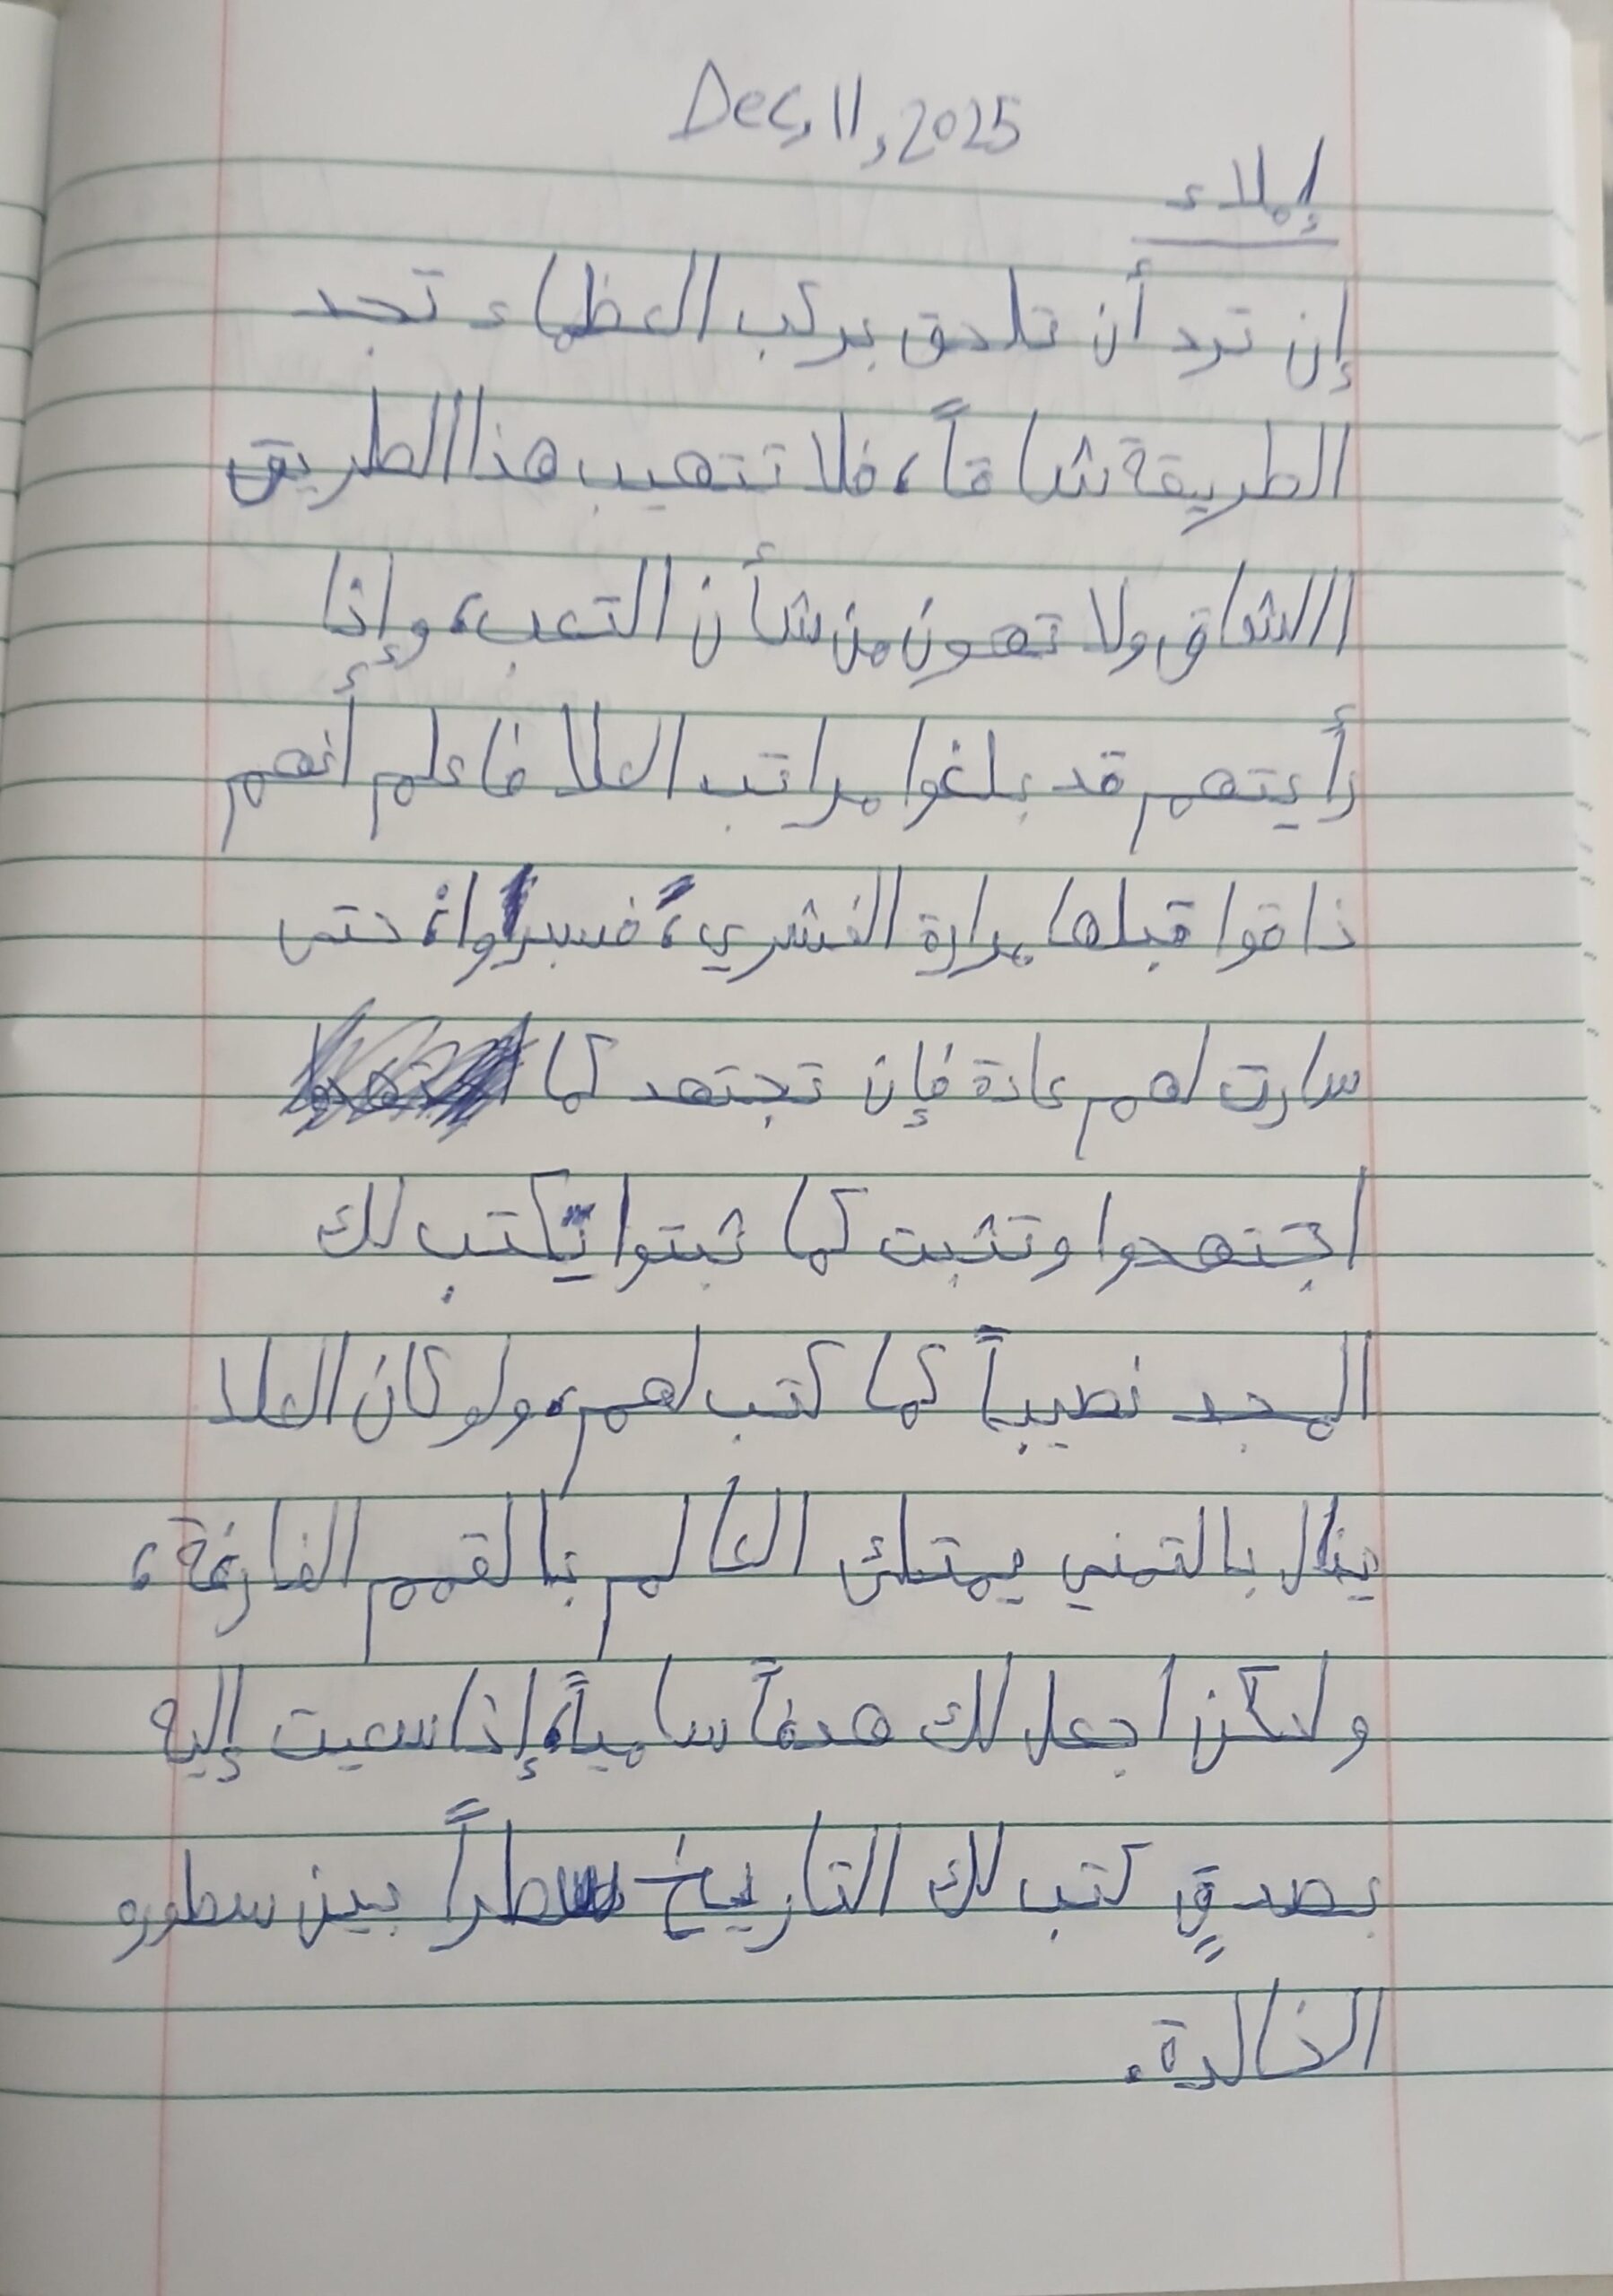 Dec, 11, 2025
إملاء
إن ترد أن تلحق بركب العظماء تجد
الطريقة شاقاً، فلا تتهيب هذا الطريق
االشاق ولا تهون من شأن التعب، وإذا
رأيتهم قد بلغوا مراتب العلا فاعلم أنهم
ذاقوا قبلها مرارة الفشري، فسبروا، حتى
سارت لهم عادة فإن تجتهد كما
اجتهدوا وتثبت كما ثبتوا يكتب لك
المجد نصيباً كما كتب لهم، ولو كان العلا
ينال بالتمني يمتلئ العالم بالقمم الفارغة،
ولكن اجعل لك هدفاً سامياً، إذا سعيت إليه
بصدقٍ كتب لك التاريخ سطراً بين سطوره
الخالدة.